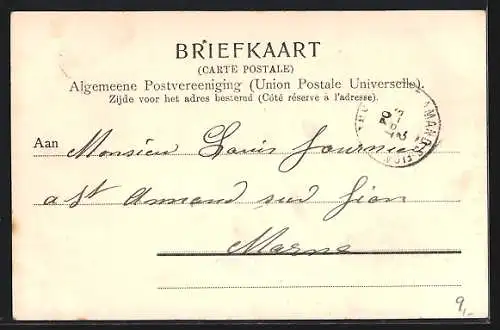 BRIEFKAART
(CARTE POSTALE)
Algemeene Postvereeniging (Union Postale Universelle).
Zijde voor het adres bestemd (Côté réserve à l'adresse).
Aan Monsieur Louis Fournier
a St Amand sur Fion
Marne
9,-